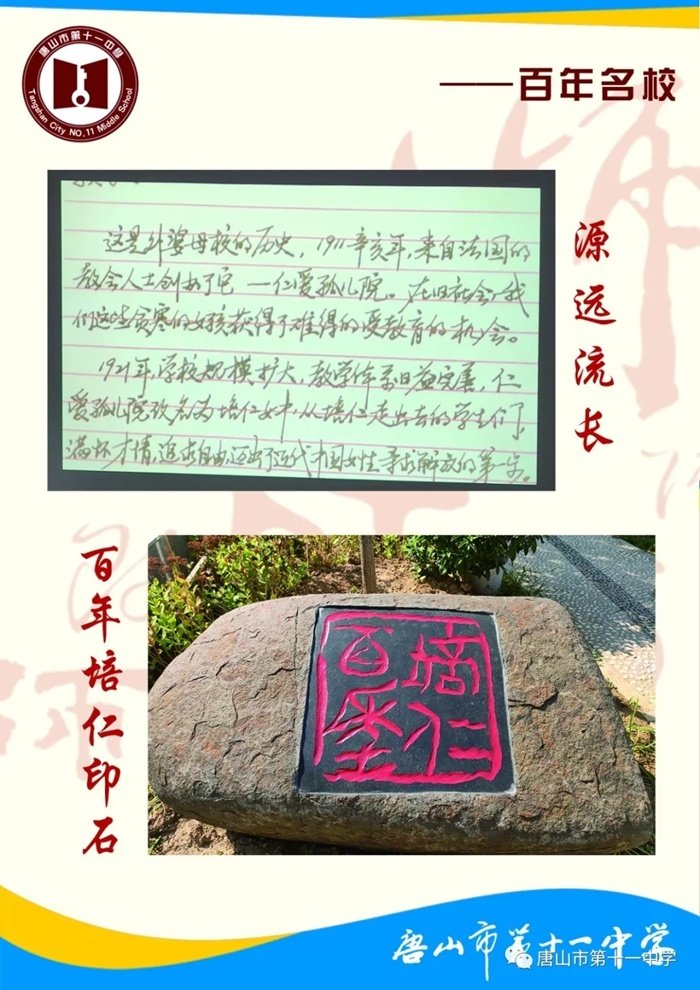 唐山市第十一中学
Tangshan City NO.11 Middle School
——百年名校
源远流长
这是外婆母校的历史，1911辛亥年，来自法国的
教会人士创办了它—仁爱孤儿院。在旧社会，我
们这些贫寒的女孩获得了难得的受教育的机会。
1921年，学校规模扩大，教学体系日益完善，仁
爱孤儿院改名为培仁女中，从培仁走出去的学生们，
满怀才情，追求自由，迈出了近代中国女性寻求解放的第一步。
百年培仁印石
百年
培仁
唐山市第十一中学
唐山市第十一中学